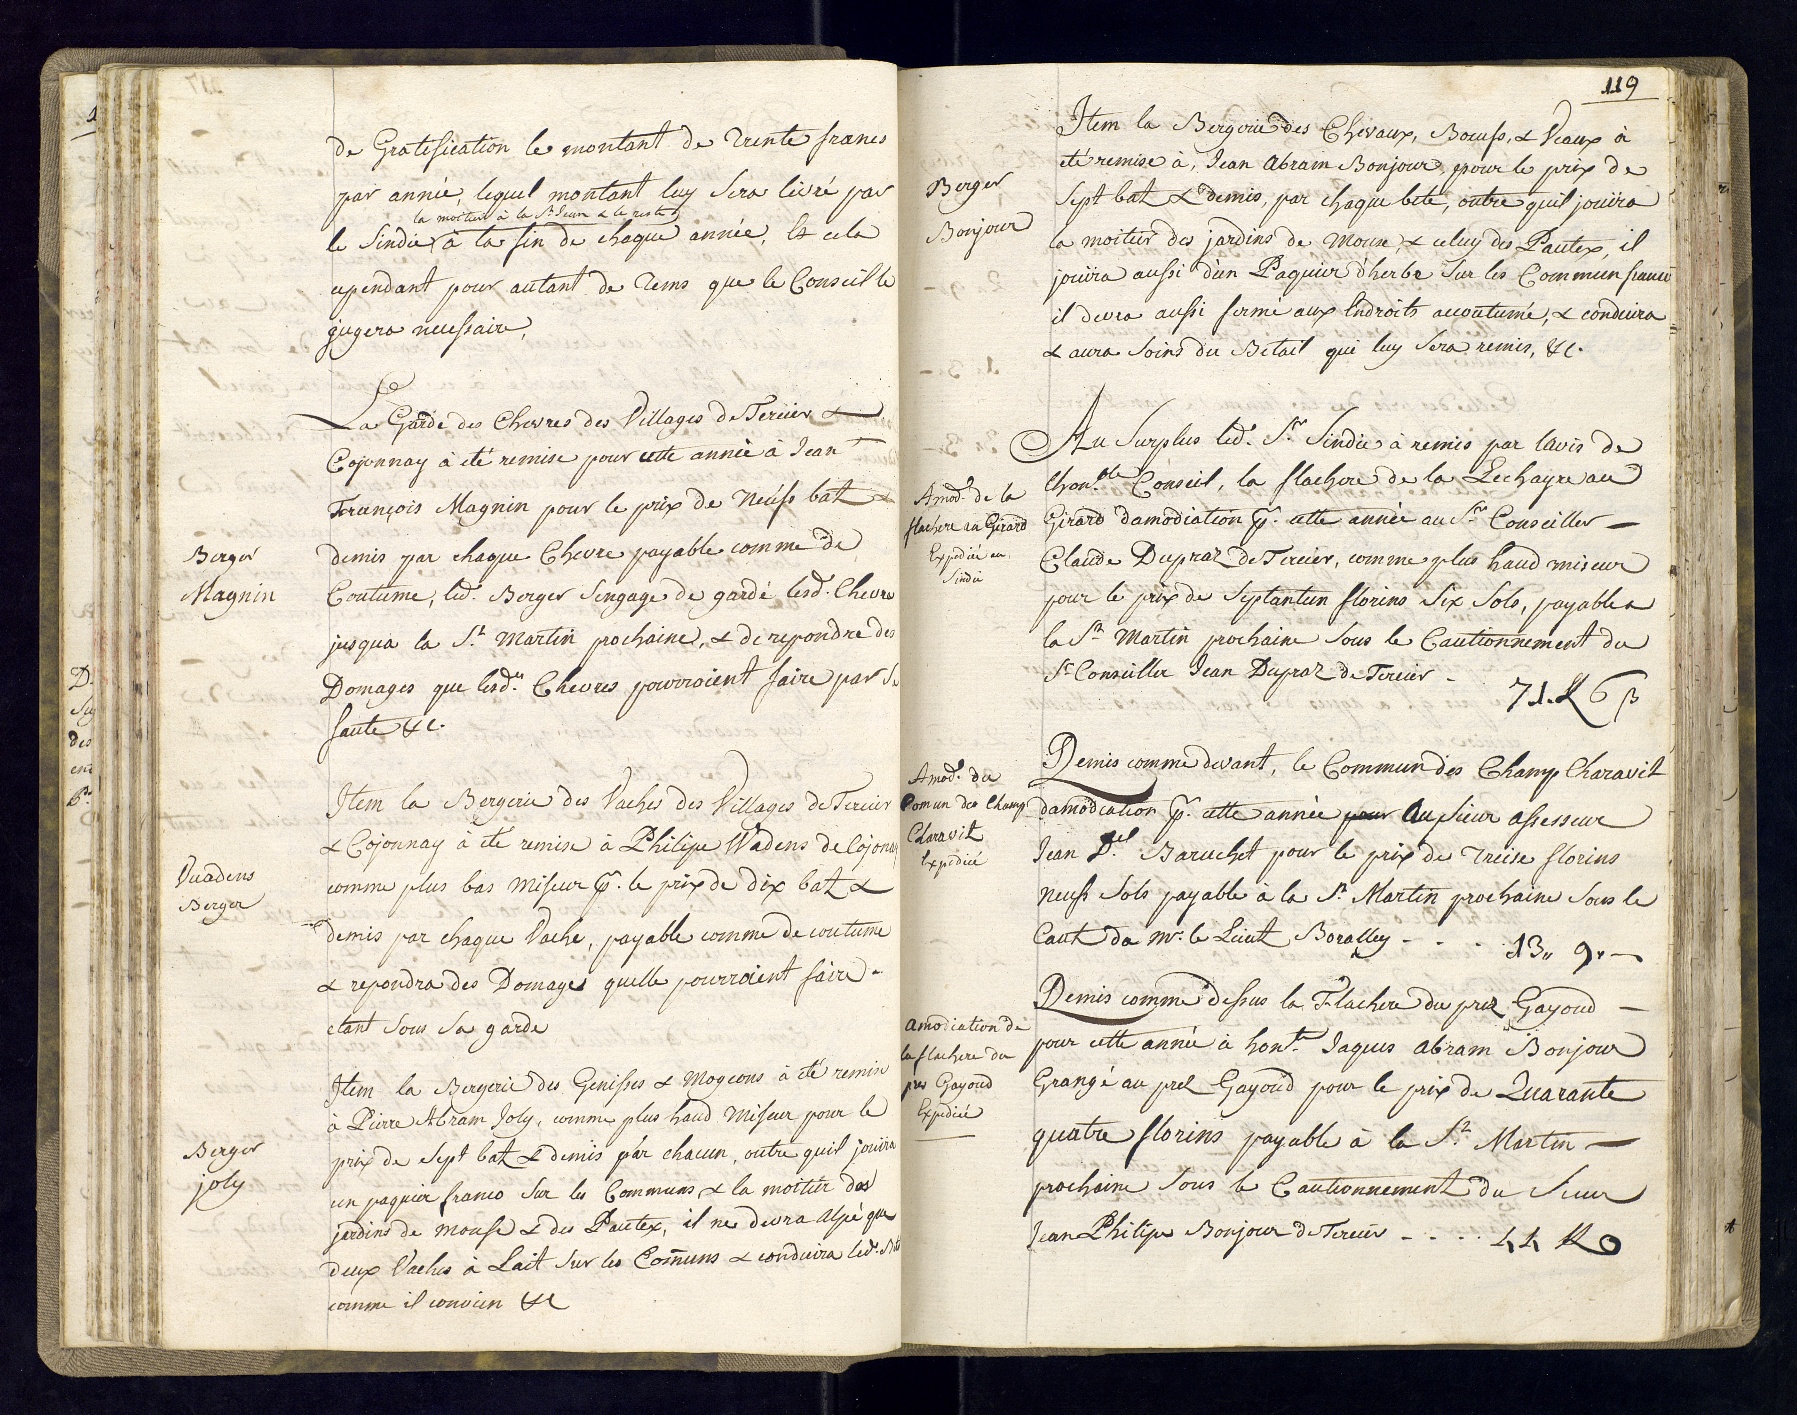 de Gratification le montant de Trente francs
par année, lequel montant luy Sera livré par
la moitier à la St Jean & le reste
le Sindic à la fin de chaque année, Et cela
cependant pour autant de Tems que le Conseil le
jugera necessaire,
La Garde des Chevres des Villages de Tercier &
Cojonnay à été remise pour cette année à Jean
François Magnin pour le prix de Neufs batz &
Berger
Magnin
demis par chaque Chevre payable comme de
Coutume, led. Berger Sengage de gardé lesd. Chevre
jusqua la St. Martin prochaine, & de repondre des
Domages que lesd.es Chevres pourroient faire par Sa
faute &c.
Item la Bergerie des Vaches des Villages de Tercier
& Cojonnay à été remise à Philipe Wadens de Cojonay
Vuadens
Berger
comme plus bas Miseur pr. le prix de dix batz &
demis par chaque Vache, payable comme de coutume
& repondra des Domages quelle pourroient faire
etant Sous Sa garde
Item la Bergerie des Genisses & Mogeons à été remise
à Pierre Abram Joly, comme plus haud Miseur pour le
Berger
joly
prix de Sept batz & demis par chacun, outre quil jouira
un paquier franco Sur les Communs & la moitier des
jardins de Mouse & des Pautex, il ne devra Alpé que
deux Vaches à Lait Sur les Comuns & conduira led. Bet
comme il convien &c
119
Item la Bergerie des Chevaux, Boeufs, & Veaux à
été remise à, Jean Abram Bonjour, pour le prix de
Berger
Bonjour
Sept batz & demis, par chaque bete, outre quil jouira
la moitier des jardins de Mouse, & celuy des Pautex, il
jouira aussi dun Paquier d'herbe Sur les Commun franco
il devra aussi fermé aux Endroits accoutumé, & conduira
& aura Soins du Betail qui luy Sera remis, &c.
Au Surplus led. Sr Sindic à remis par lavis de
Lhon.ble Conseil, la flachere de la Lechayre au
Amod. de la
flachere au Girard
Expedié au
Sindic
Girard damodiation pr. cette année au Sr Conseiller
Claude Dupraz de Tercier, comme plus haud miseur
pour le prix de Septantun florins Six Sols, payable a
la St. Martin prochaine Sous le Cautionnement du
Sr Conseiller Jean Dupraz de Tercier - 71. fl 6 ß
Demis comme devant, le Commun des Champ Charavit
Amod. du
Comun des Champ
Charavit
Expedié
damodiation pr. cette année pour Au Sieur assesseur
Jean Del Baruchet pour le prix de Treise florins
Neufs Sols payable à la St. Martin prochaine Sous le
Caut du Mr. le Lieut Boralley - - - 13,, 9,, -
Demis comme dessus la Flachere du prez Gayoud
Amodiation de
la flachere du
prez Gayoud
Expedié
pour cette année à hon.te Jaques Abram Bonjour
Grangé au prez Gayoud pour le prix de Quarante
quatre florins payable à la St Martin
prochaine Sous le Cautionnement du Sieur
Jean Philipe Bonjour de Tercier - - - - 44 fl 0